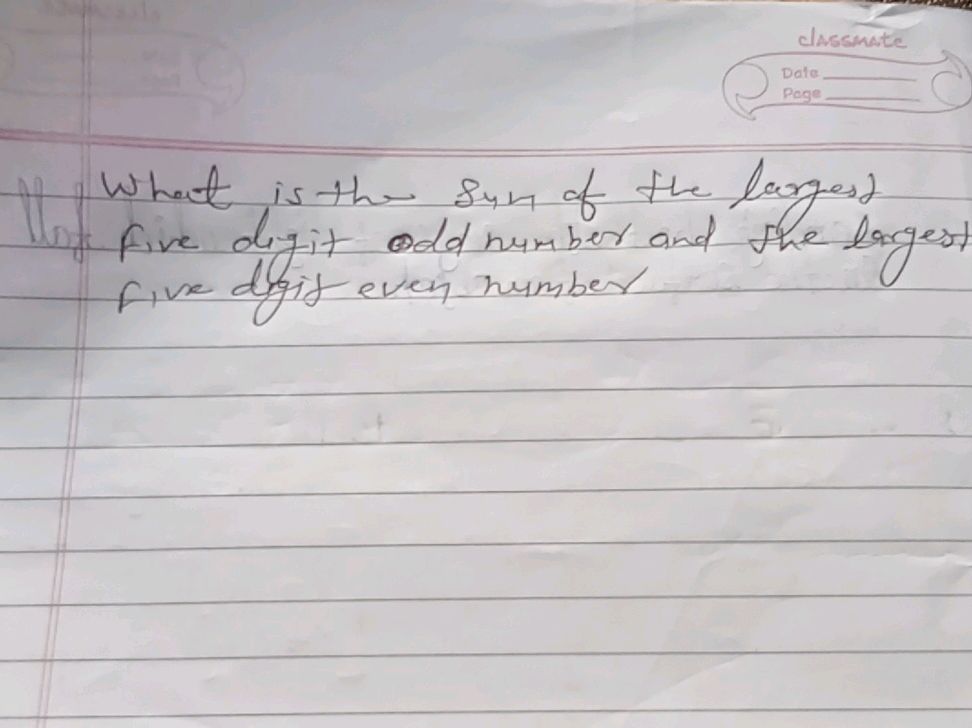 classmate
Date
Page
What is the sum of the largest
five digit odd number and the largest
five digit even number